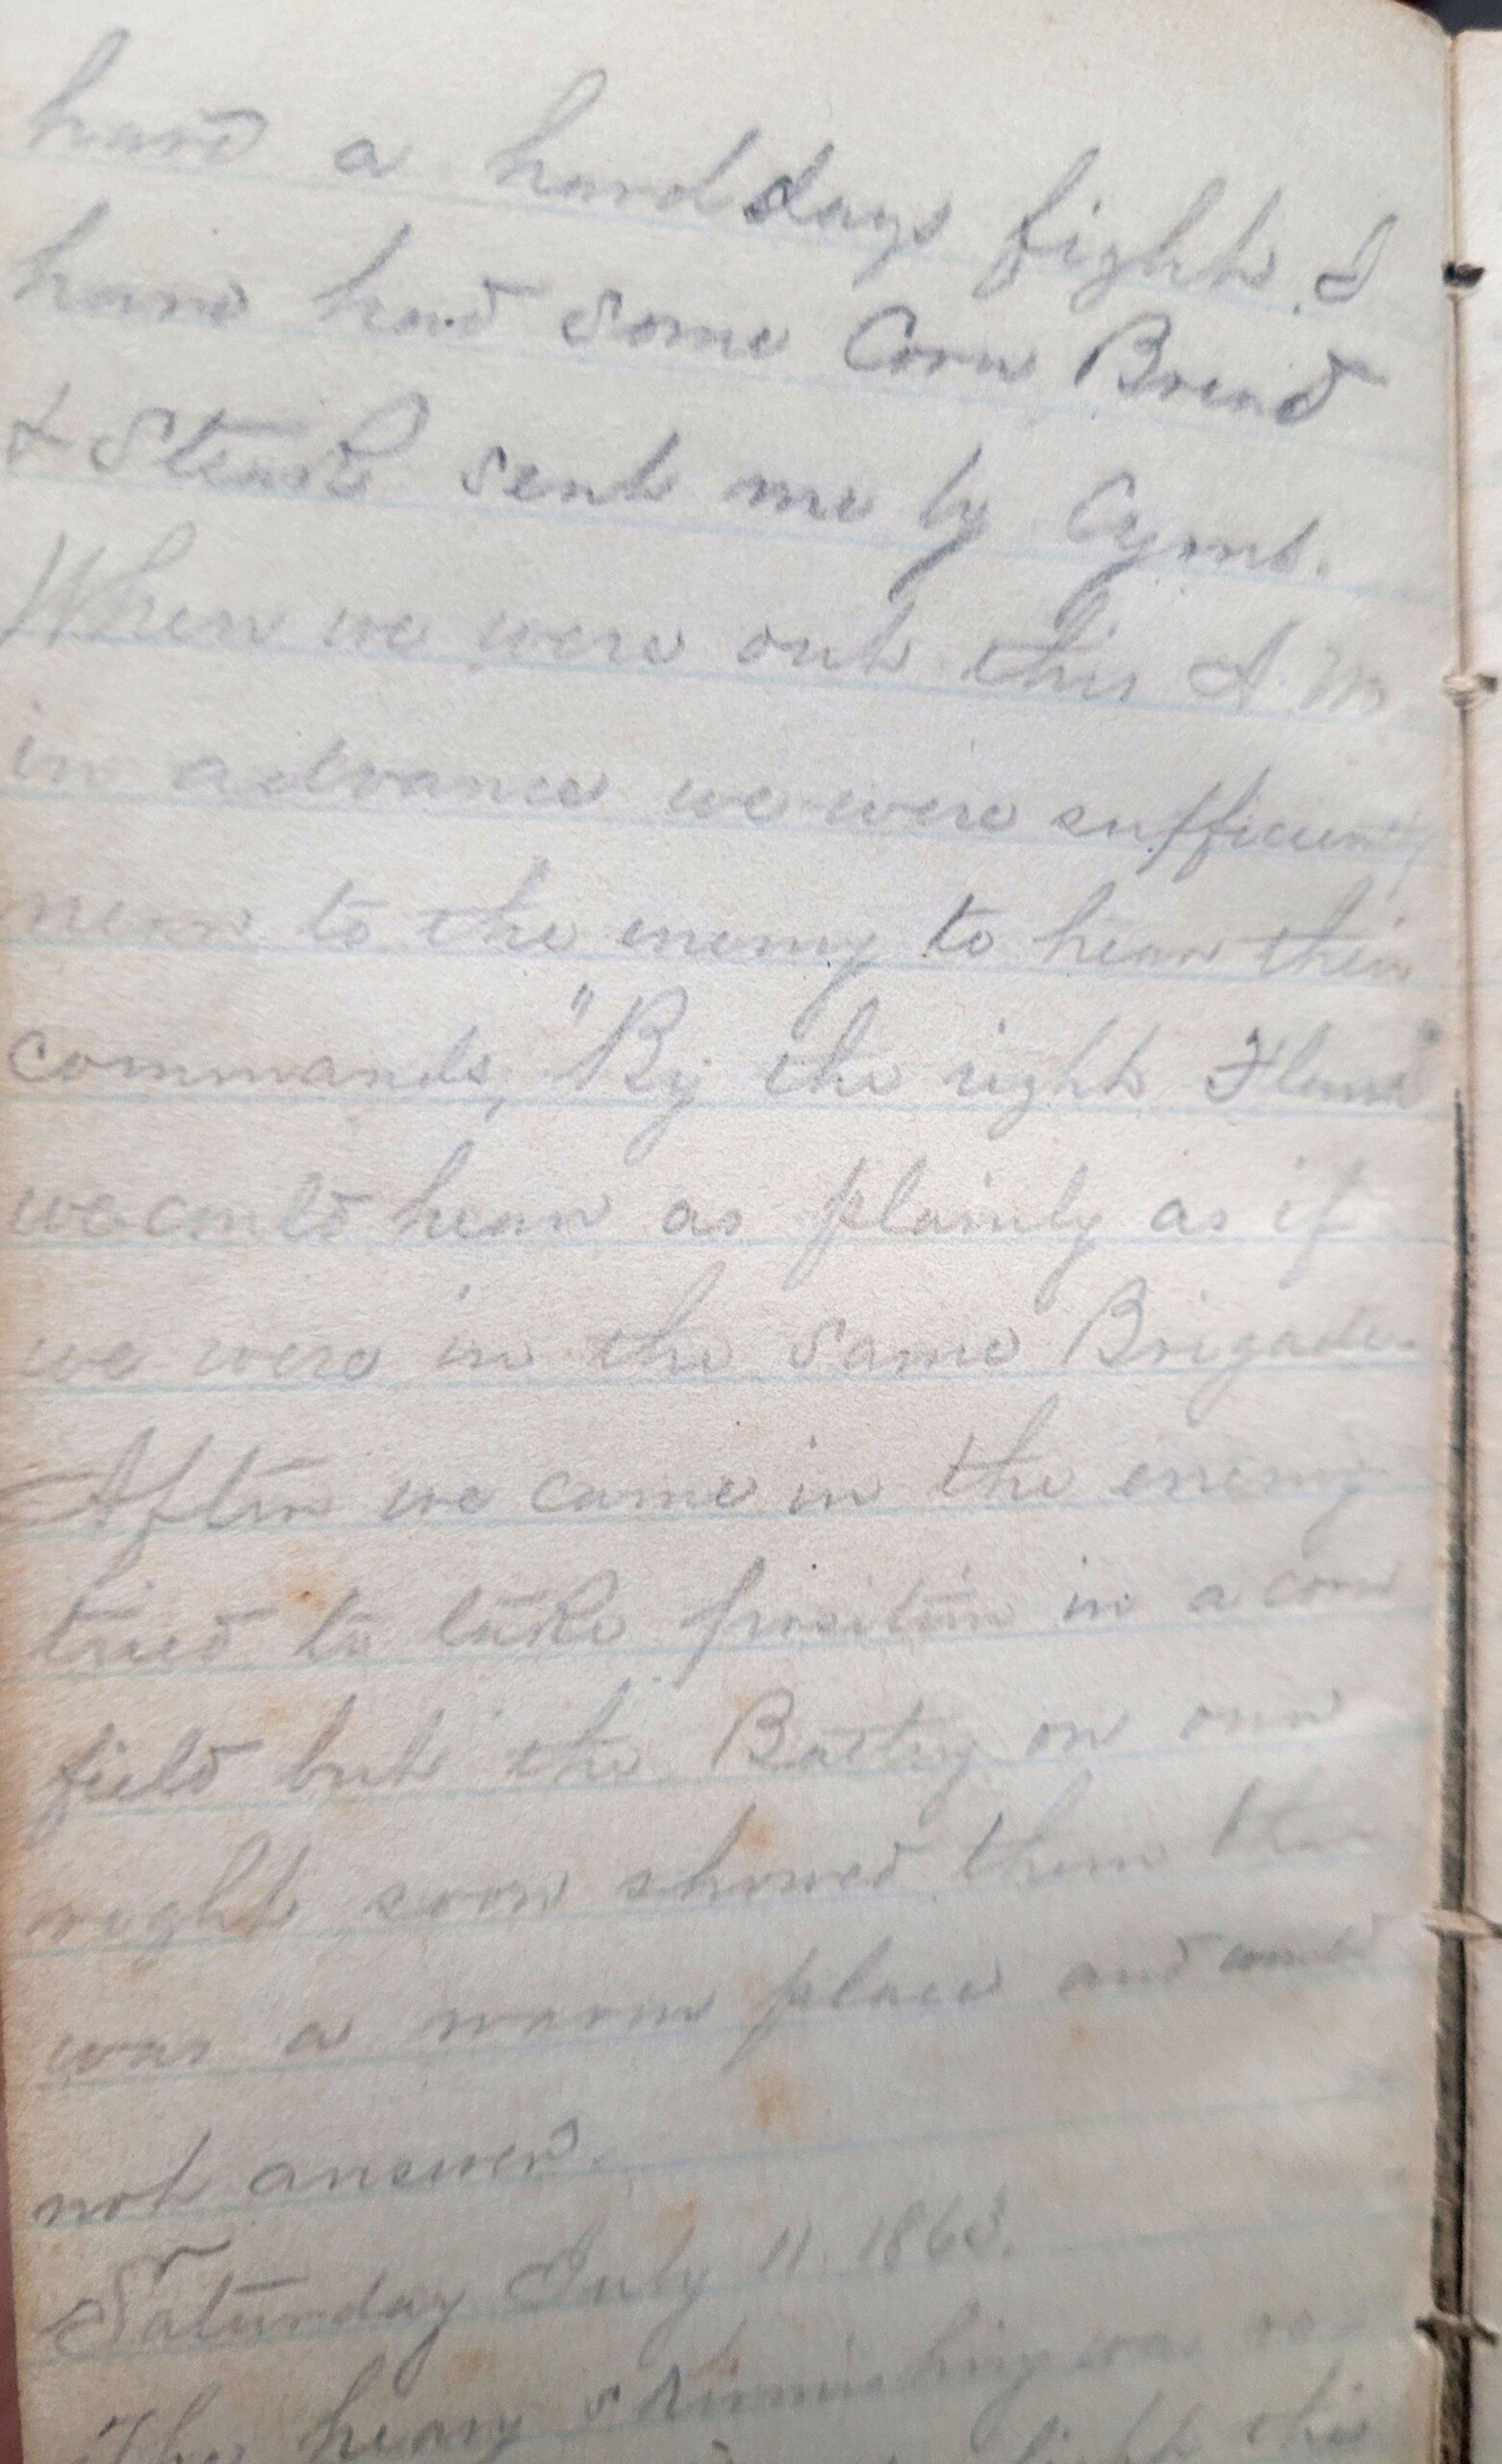 hard a hard days fight. I
have had some Corn Bread
& Steak sent me by
When we were out this A. M
in advance we were sufficiently
near to the enemy to hear their
commands, "By the right Flank"
we could hear as plainly as if
we were in the same Brigade.
After we came in the enemy
tried to take position in a corn
field but the Battery on our
right soon showed them
was a warm place and would
not answer.
Saturday July 11. 1863.
The heavy skirmishing was
this